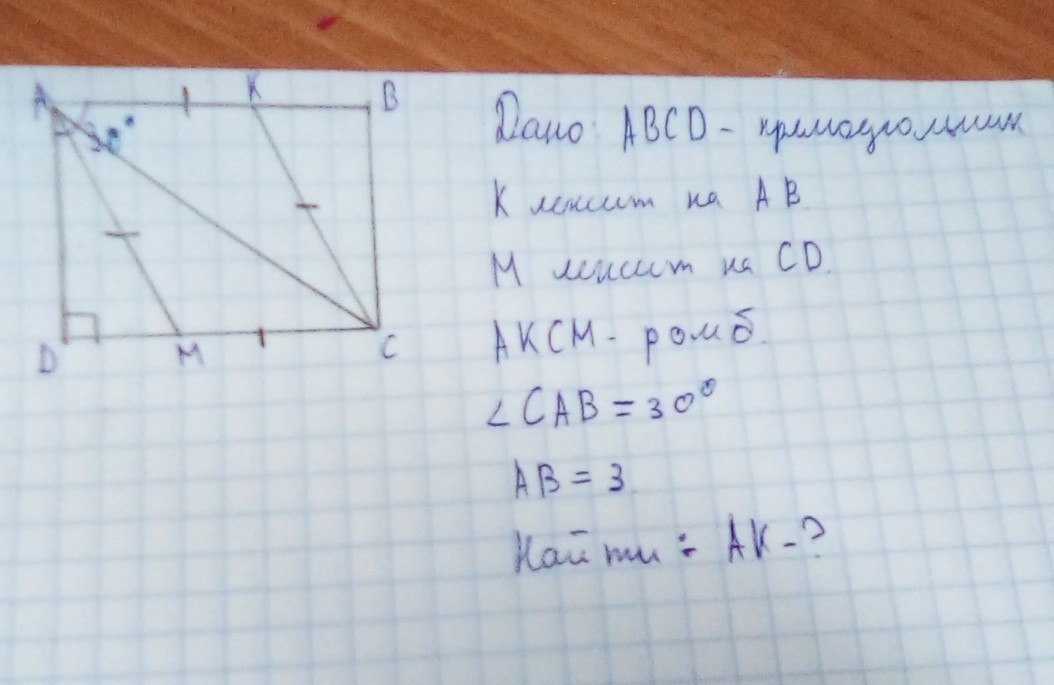 A K B
30°
D M C
Дано: ABCD - прямоугольник
K лежит на AB
M лежит на CD.
AKCM - ромб.
∠CAB = 30°
AB = 3.
Найти: AK - ?